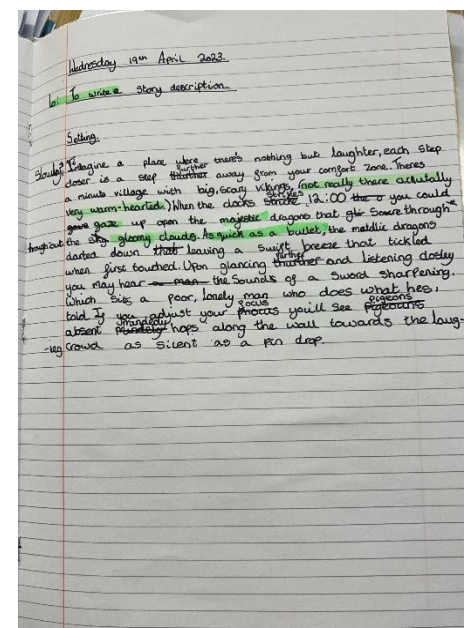 Wednesday 19th April 2023.
Lo: To write a story description.
Setting.
Slowly, Imagine a place where there's nothing but laughter, each step
closer is a step further away from your comfort zone. Theres
a minute village with big, scary vikings, (not really there actually
very warm-hearted.) When the clocks strikes 12:00 you could
gaze up open the majestic dragons that soare through
throughout the gloomy clouds. As quick as a bullet, the metallic dragons
darted down leaving a swift breeze that tickled
when first touched. Upon glancing further and listening closley
you may hear the sounds of a sword sharpening.
Which sits a poor, lonely man who does what hes,
told. If you adjust your focus you'll see pigeons
absent hops along the wall towards the laug-
-ing crowd as silent as a pin drop.